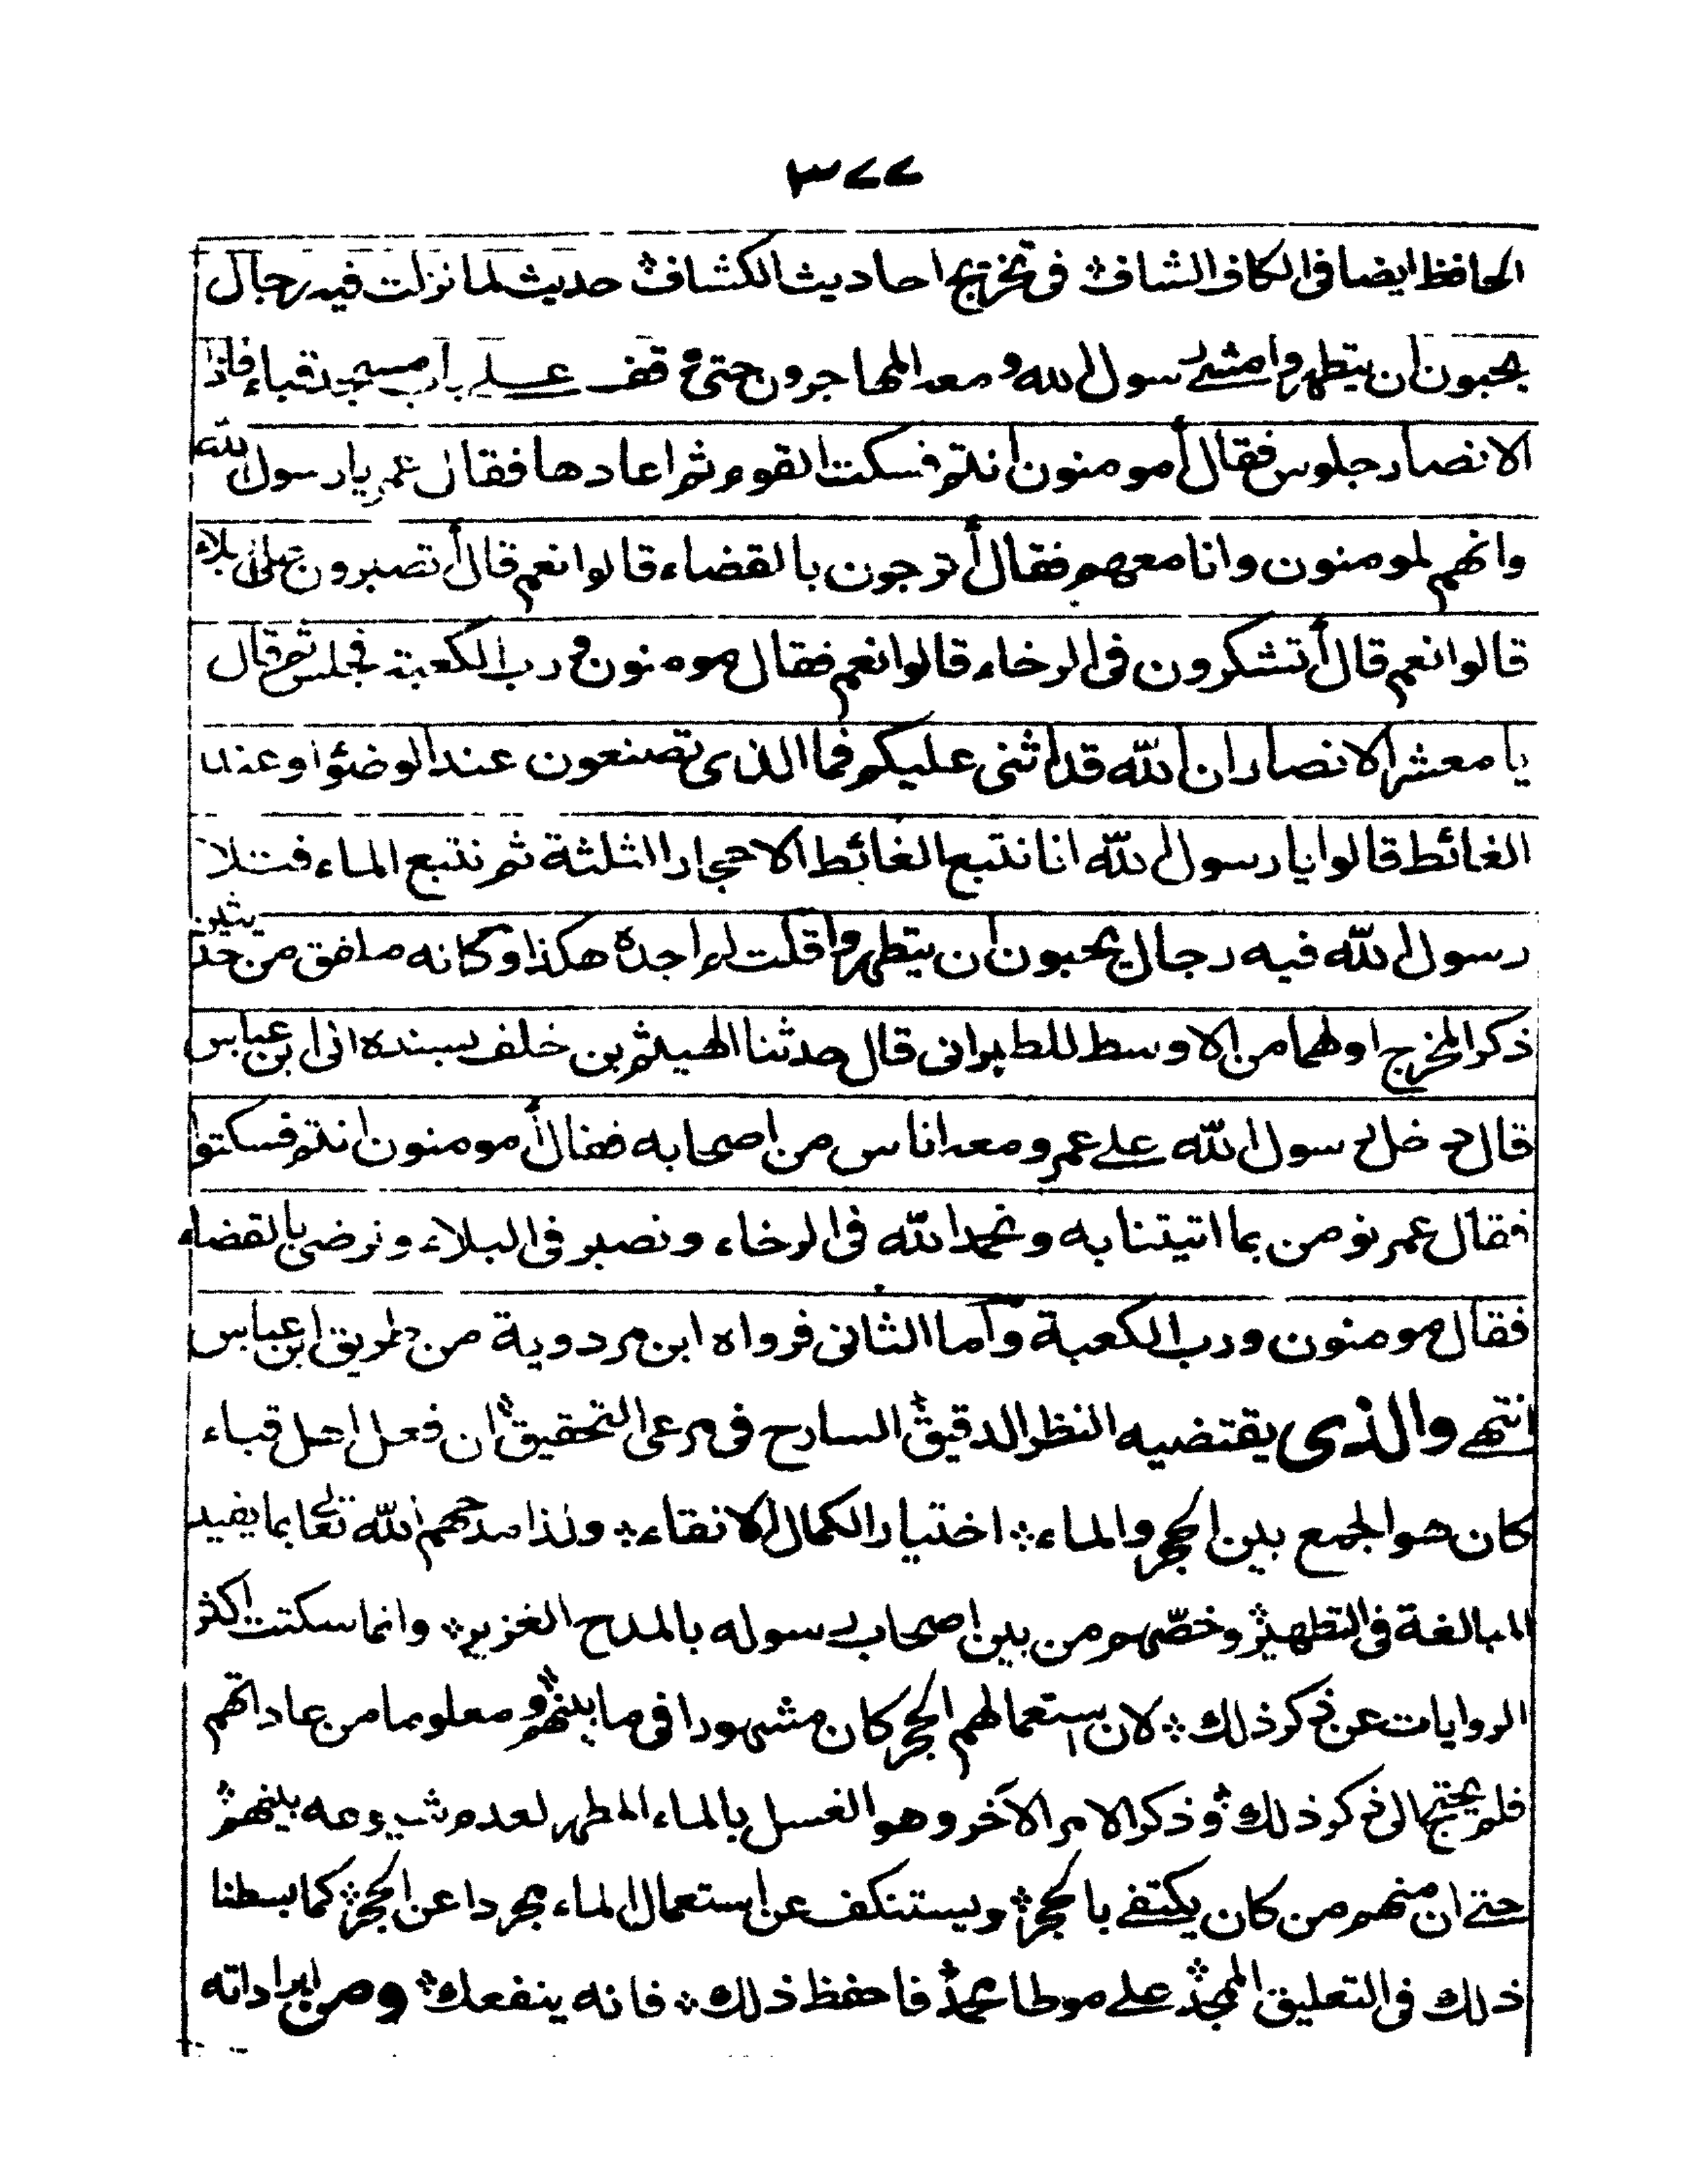 ٣٧٧
الحافظ ايضا في الكاف الشاف في تخريج احاديث الكشاف حديث لما نزلت فيه رجال
يحبون ان يتطهروا مشى رسول الله ومعه المهاجرون حتى وقف على باب مسجد قباء فاذا
الانصار جلوس فقال أمومنون انتم فسكت القوم ثم اعادها فقال عمر يا رسول الله
وانهم لمومنون وانا معهم فقال أترجون بالقضاء قالوا نعم قال أتصبرون على بلاء
قالوا نعم قال أتشكرون في الرخاء قالوا نعم فقال مومنون ورب الكعبة فجلس ثم قال
يا معشر الانصار ان الله قد اثنى عليكم فما الذي تصنعون عند الوضؤ او عند
الغائط قالوا يا رسول الله انا نتبع الغائط الاحجار الثلثة ثم نتبع الماء فتلا
رسول الله فيه رجال يحبون ان يتطهروا قلت لم اجده هكذا وكانه ملفق من حديثين
ذكر المخرج اولهما من الاوسط للطبراني قال حدثنا الهيثم بن خلف بسنده الى ابن عباس
قال دخل رسول الله على عمر ومعه اناس من اصحابه فقال أمومنون انتم فسكتوا
فقال عمر نومن بما اتيتنا به ونحمد الله في الرخاء ونصبر في البلاء ونرضى بالقضاء
فقال مومنون ورب الكعبة وآما الثاني فرواه ابن مردوية من طريق ابن عباس
انتهى والذي يقتضيه النظر الدقيق السارح في مرعى التحقيق ان فعل اهل قباء
كان هو الجمع بين الحجر والماء اختيارا لكمال الانقاء ولذا مدحهم الله تعالى بما يفيد
المبالغة في التطهير وخصّهم من بين اصحاب رسوله بالمدح الغزير وانما سكتت اكثر
الروايات عن ذكر ذلك لان استعمالهم الحجر كان مشهورا في ما بينهم ومعلوما من عاداتهم
فلم يحتج الى ذكر ذلك وذكر الامر الآخر وهو الغسل بالماء المطهر لعدم شيوعه بينهم
حتى ان منهم من كان يكتفي بالحجر ويستنكف عن استعمال الماء مجردا عن الحجر كما بسطنا
ذلك في التعليق الممجد على موطا محمد فاحفظ ذلك فانه ينفعك ومن ايراداته